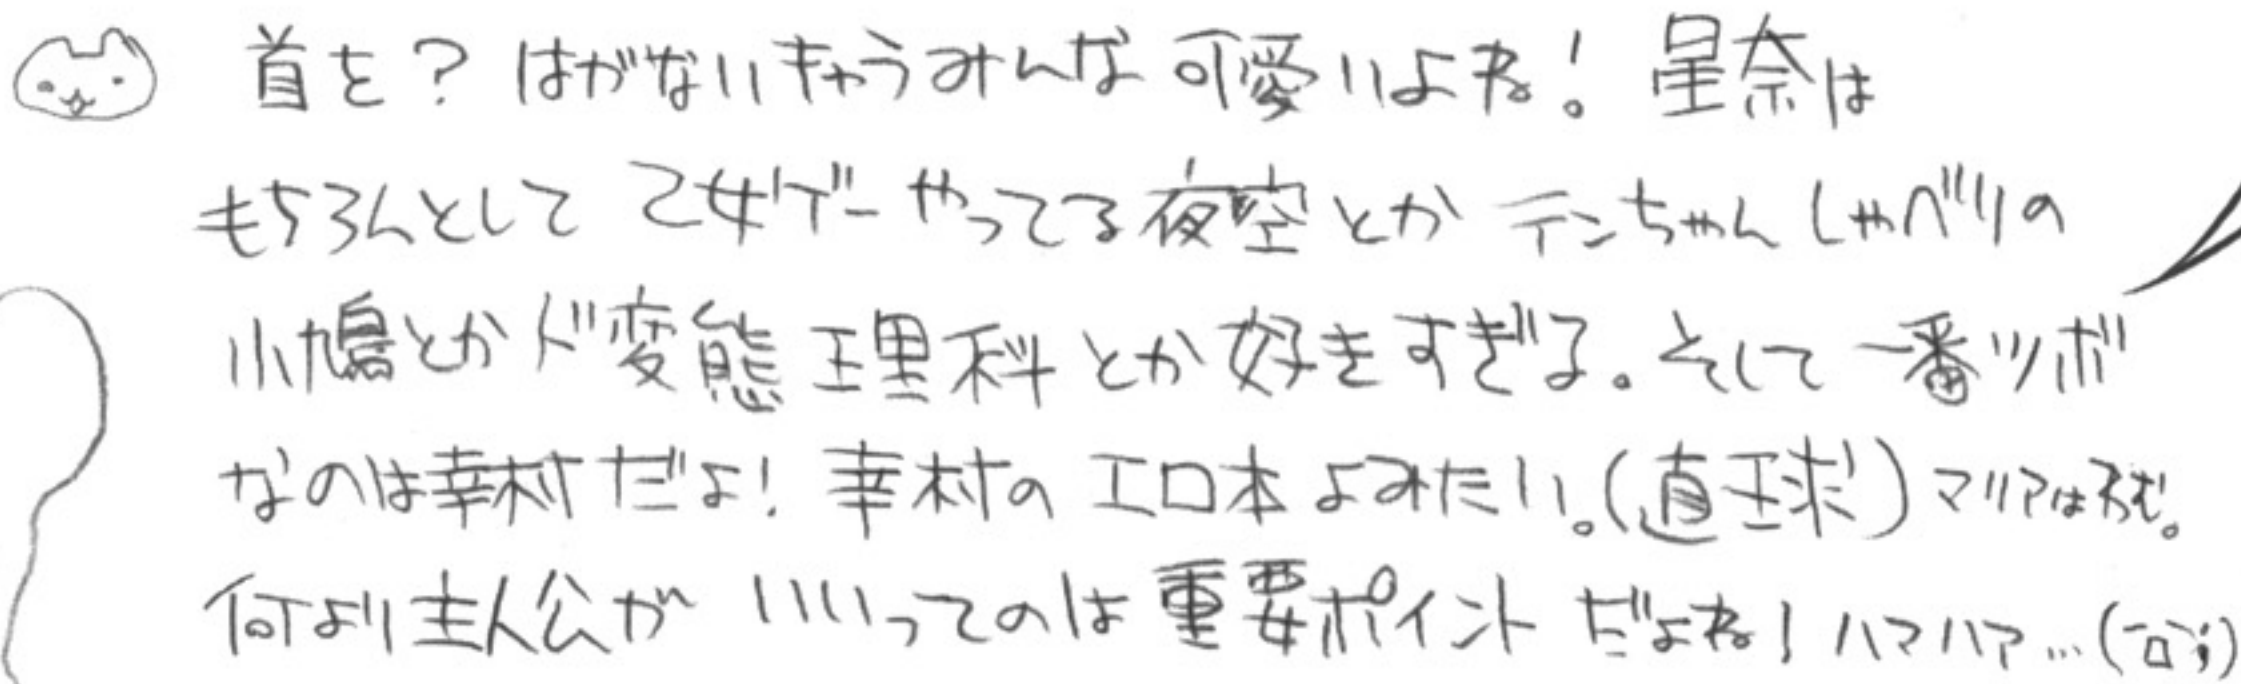 首を？はがないきゃらみんな可愛いよね！星奈は
もちろんとして乙女ゲーやってる夜空とかテンちゃんしゃべりの
小鳩とかド変態理科とか好きすぎる。そして一番ツボ
なのは幸村だよ！幸村のエロ本よみたい。(直球)マリアは
何より主人公がいいってのは重要ポイントだよね！ハァハァ…